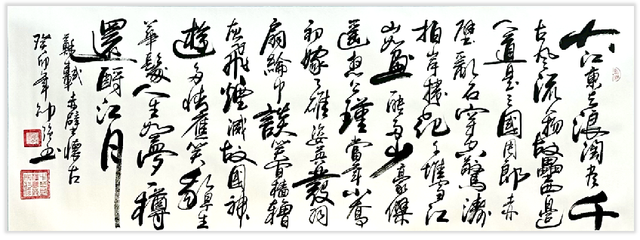 大江東去浪淘尽千
古風流人物故壘西邊
人道是三國周郎赤
壁亂石穿空驚濤
拍岸捲起千堆雪江
山如畫一時多少豪傑
遥想公瑾當年小喬
初嫁了雄姿英發羽
扇綸巾談笑間檣櫓
灰飛煙滅故國神
遊多情應笑我早生
華髮人生如夢一樽
還酹江月
蘇軾赤壁懷古
癸卯年 書